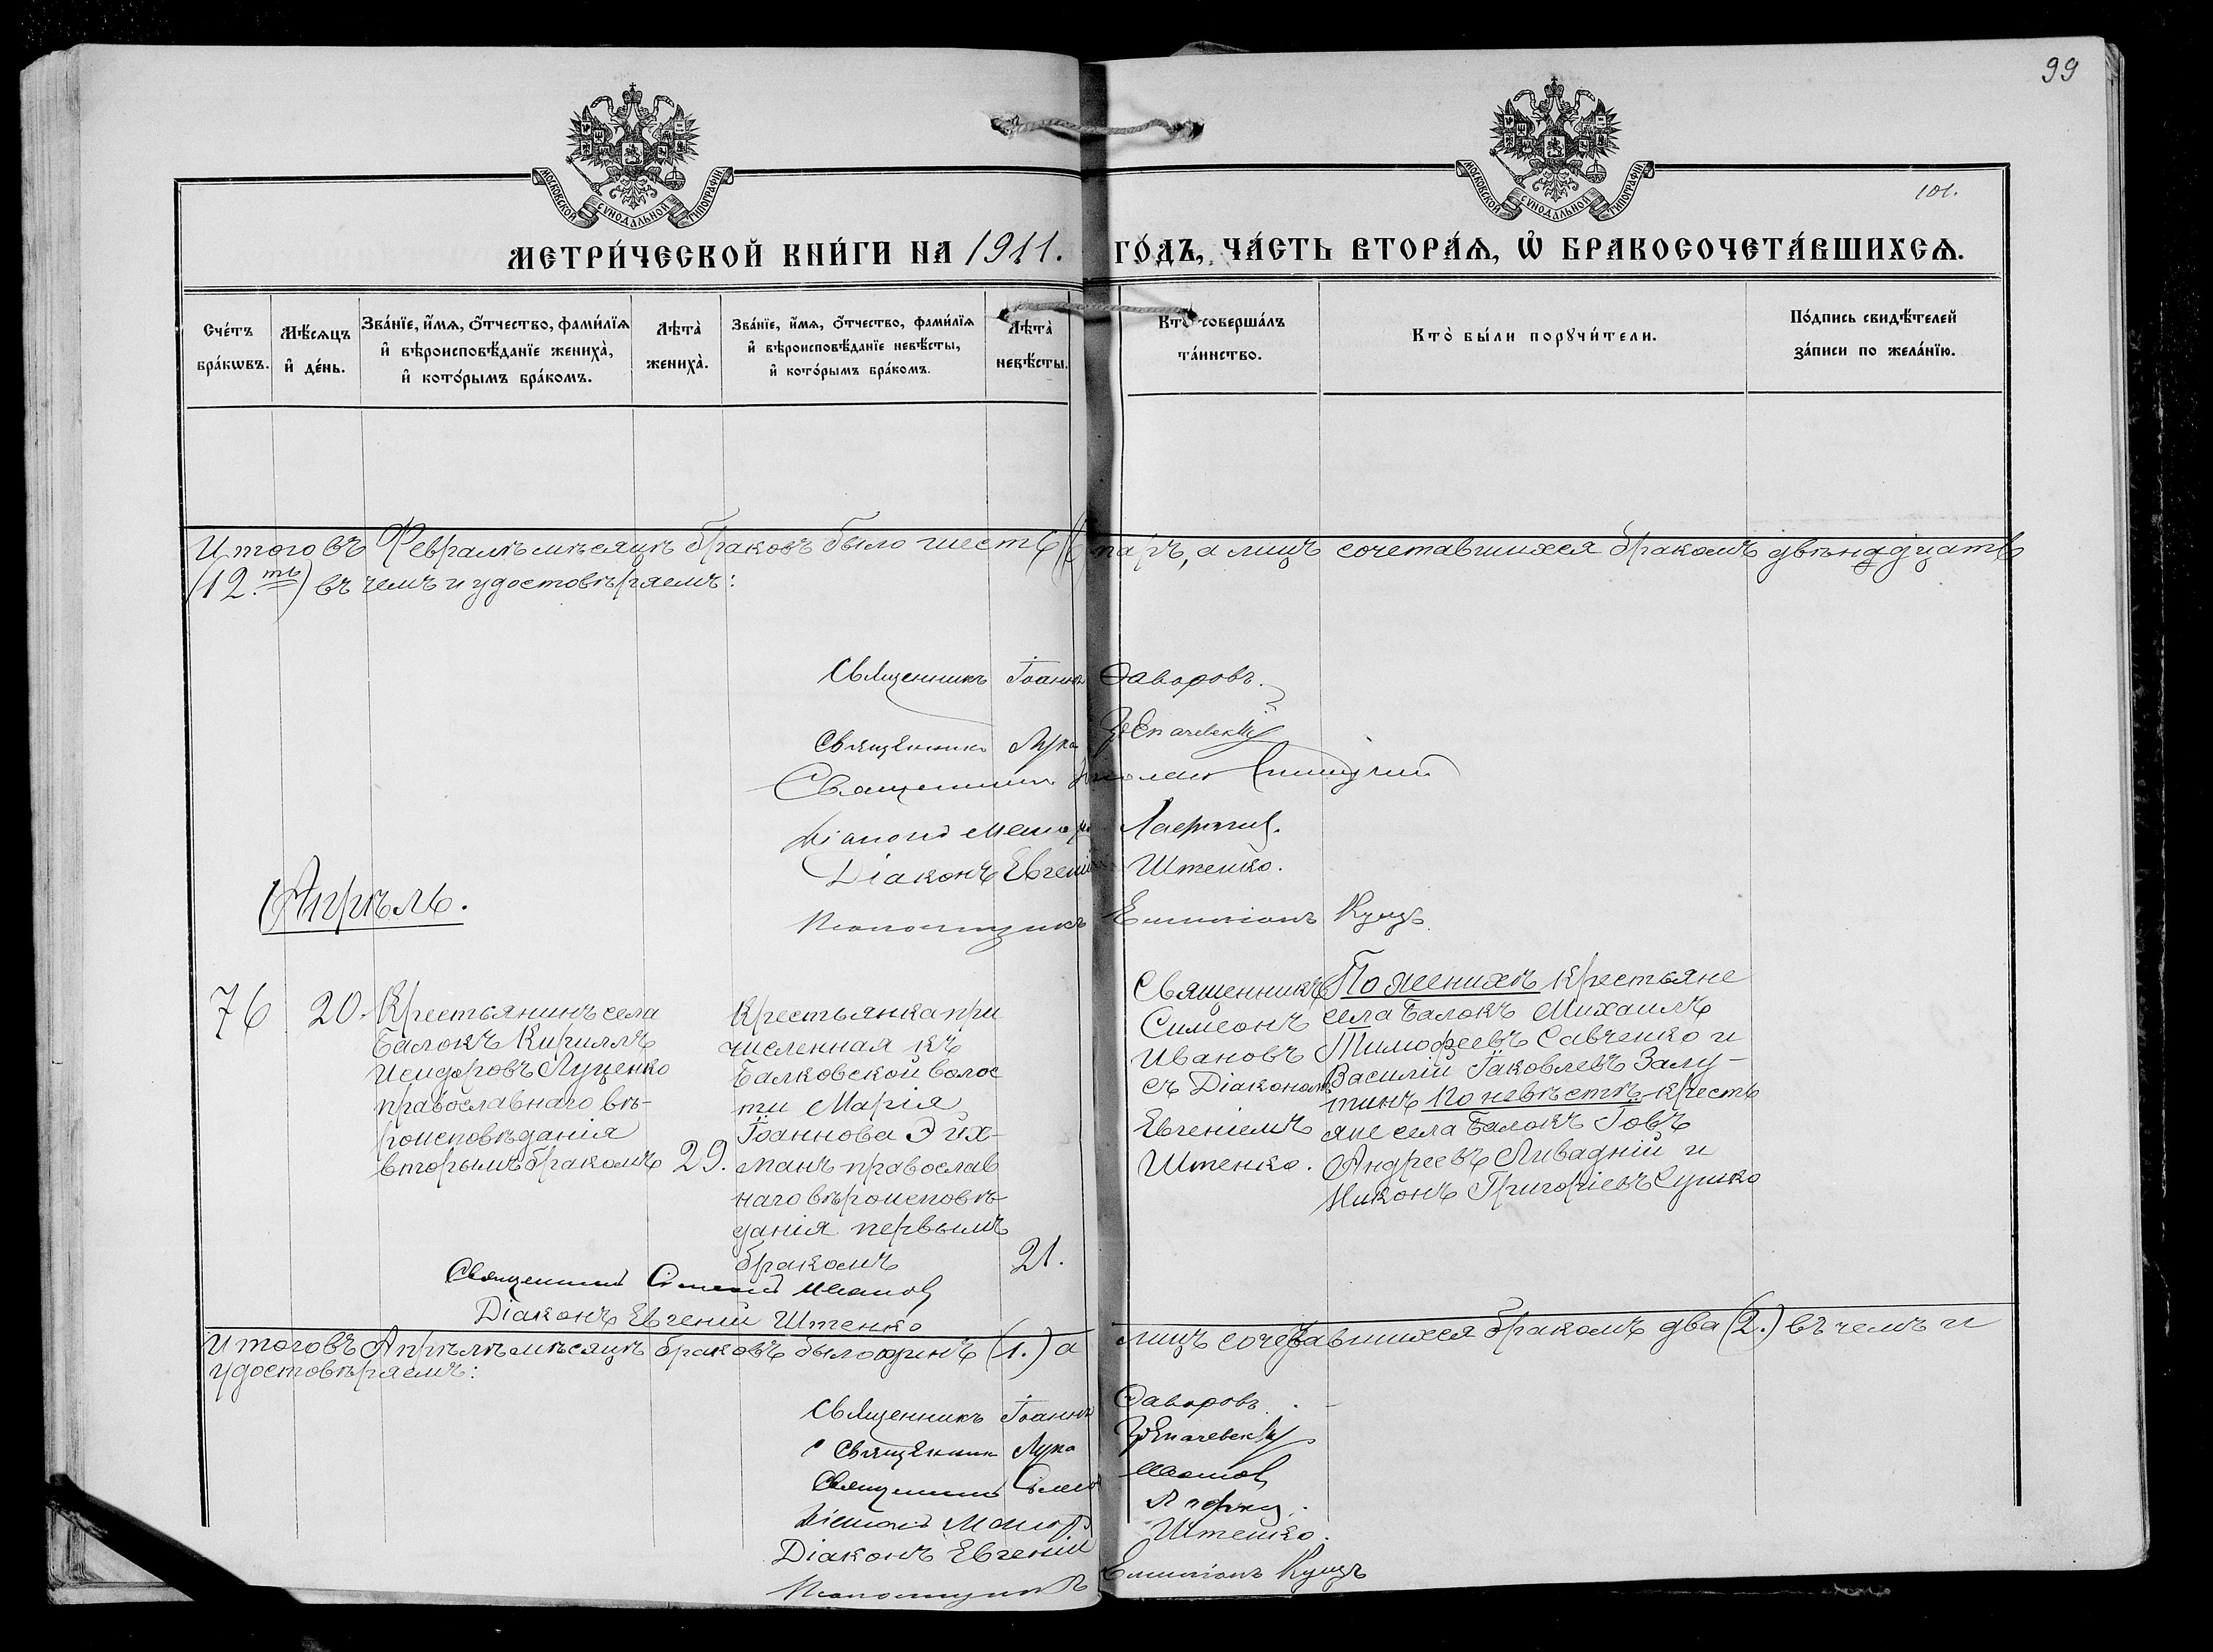 99
101.
МОСКОВСКОЙ СѴНОДАЛЬНОЙ ТИПОГРАФІИ
МОСКОВСКОЙ СѴНОДАЛЬНОЙ ТИПОГРАФІИ
МЕТРИ́ЧЕСКОЙ КНИ́ГИ НА 1911. ГО́ДЪ, ЧА́СТЬ ВТОРА́Ѧ, Ѡ҆ БРАКОСОЧЕТА́ВШИХСѦ.
Сче́тъ бра́кѡвъ.
Мѣ́сѧцъ и҆ де́нь.
Зва́нїе, и҆́мѧ, ѻ҆́тчество, фами́лїѧ
и҆ вѣроисповѣ́данїе жениха̀,
и҆ кото́рымъ бра́комъ.
Лѣта̀ жениха̀.
Зва́нїе, и҆́мѧ, ѻ҆́тчество, фами́лїѧ
и҆ вѣроисповѣ́данїе невѣ́сты,
и҆ кото́рымъ бра́комъ.
Лѣта̀ невѣ́сты.
Кто̀ соверша́лъ
та́инство.
Кто̀ бы́ли порꙋчи́тели.
По́дпись свидѣ́телей
за́писи по жела́нїю.
Итого въ Февралѣ мѣсяцѣ браковъ было шесть (6 паръ, а лицъ сочетавшихся бракомъ двѣнадцать
(12.ть) въ чемъ и удостовѣряемъ:
Священникъ Іоаннъ Ѳаворовъ.
Священникъ Лука
Священникъ
Діаконъ
Діаконъ Евгеній Штенко.
Псаломщикъ Емиліанъ Куцъ.
Апрѣль.
76
20.
Крестьянинъ села
Балокъ Кириллъ
Исидоровъ Луценко
православнаго вѣ-
роисповѣданія
вторымъ бракомъ
29.
Крестьянка при
численная къ
Балковской волос
ти Марія
Іоаннова Эйх-
манъ православ
наго вѣроисповѣ-
данія первымъ
бракомъ
21.
Священникъ
Симеонъ
Ивановъ
съ Діакономъ
Евгеніемъ
Штенко.
По женихѣ крестьяне
села Балокъ Михаилъ
Тимофеевъ Савченко и
Василій Іаковлевъ Залу-
тинъ по невѣстѣ-кресть
яне села Балокъ Іовъ
Андреевъ Ливадній и
Никонъ Григоріевъ Сушко
Священникъ Симеонъ Ивановъ
Діаконъ Евгеній Штенко
Итого въ Апрѣлѣ мѣсяцѣ браковъ было одинъ (1.) а лицъ сочетавшихся бракомъ два (2.) въ чемъ и
удостовѣряемъ:
Священникъ Іоаннъ Ѳаворовъ.
Священникъ Лука
Священникъ Симеонъ Ивановъ
Діаконъ
Діаконъ Евгеній Штенко.
Псаломщикъ Емиліанъ Куцъ